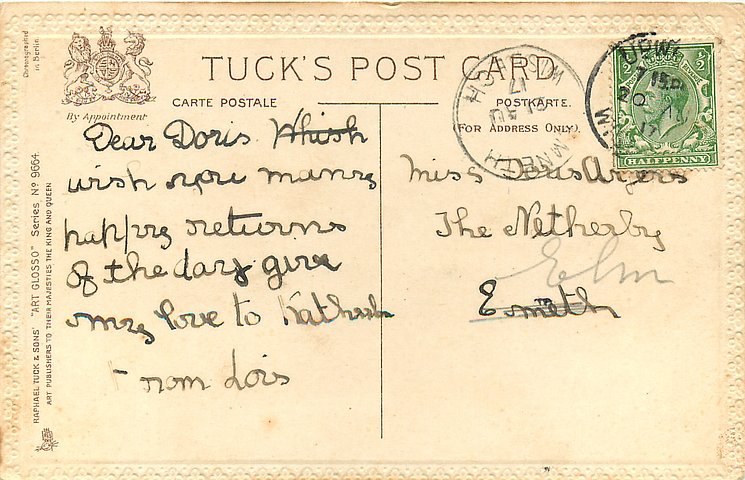 Chromographed
in Berlin
By Appointment
TUCK'S POST CARD
CARTE POSTALE
POSTKARTE.
(FOR ADDRESS ONLY).
HALFPENNY
Dear Doris Whish
wish you many
happy returns
of the day give
my love to
From Lois
Miss Doris
The Netherby
Elm
Emneth
RAPHAEL TUCK & SONS' "ART GLOSSO" Series Nº 9664.
ART PUBLISHERS TO THEIR MAJESTIES THE KING AND QUEEN